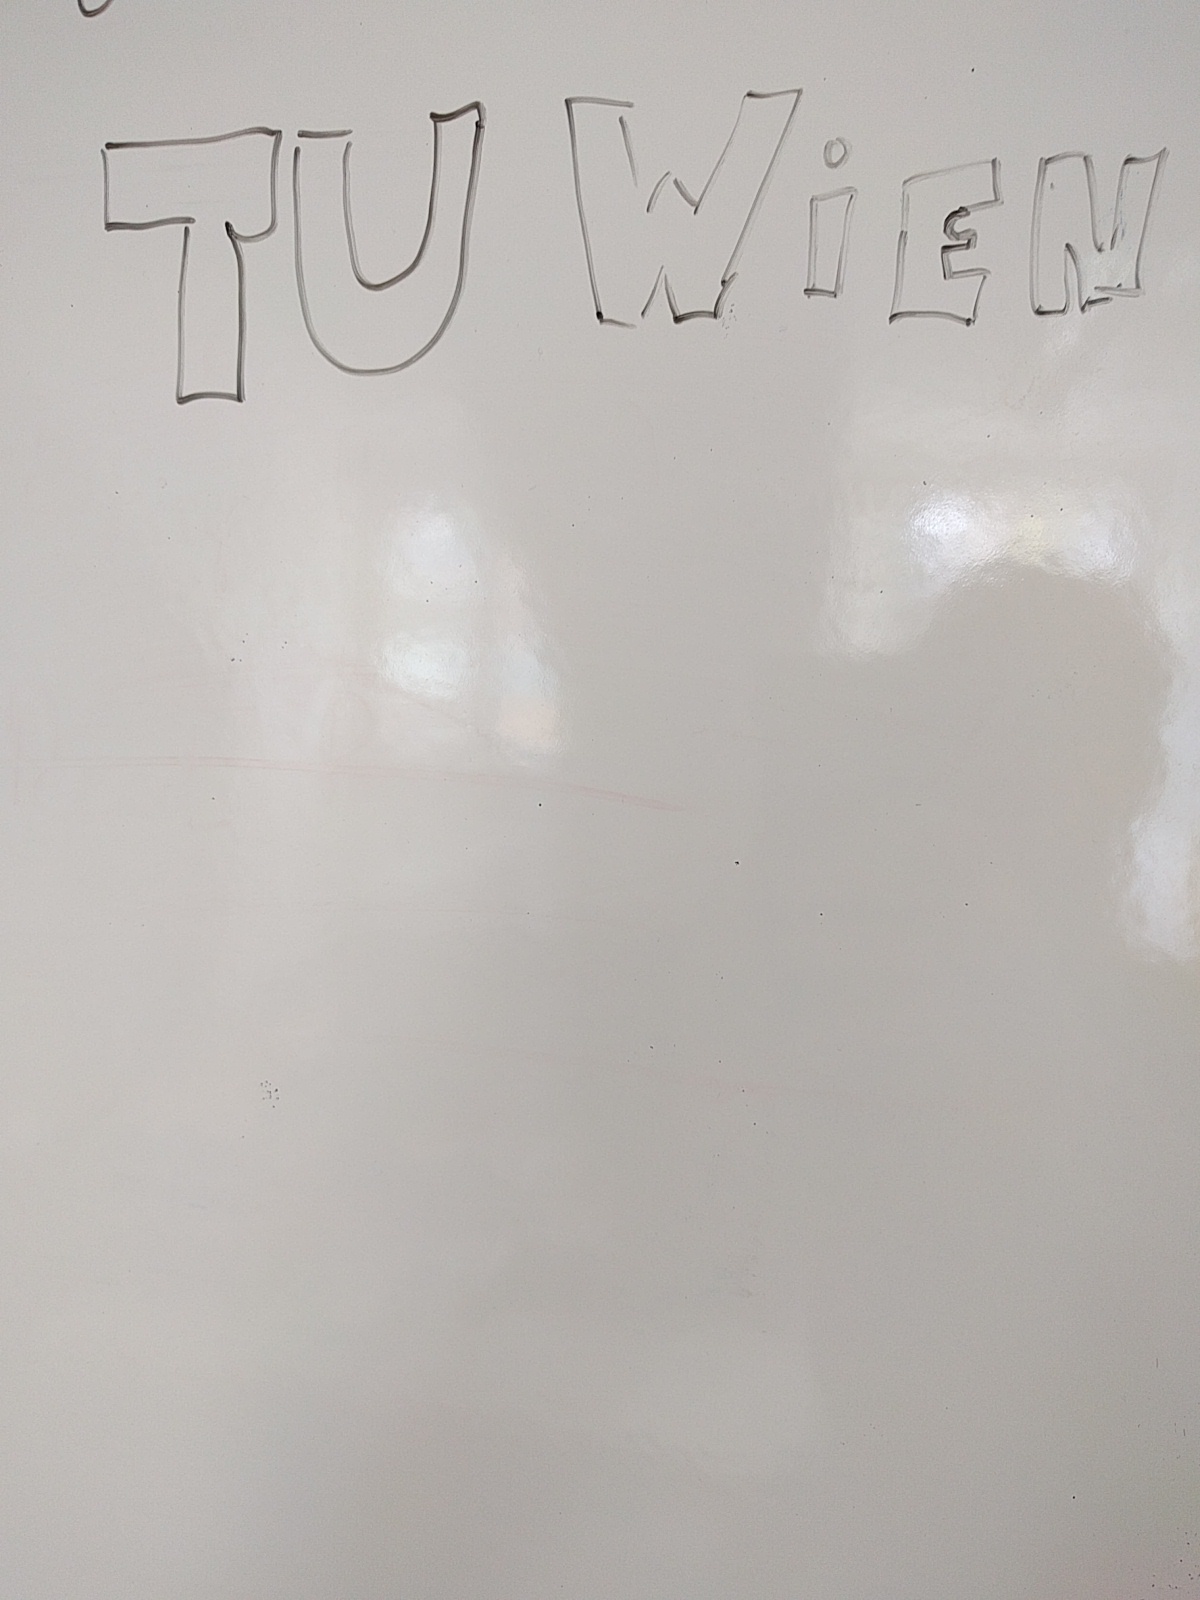 TU WiEN